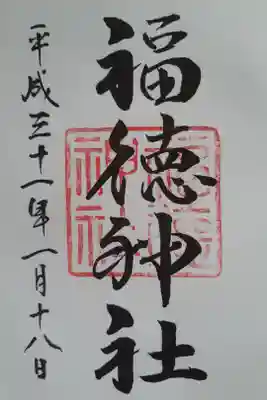 福徳神社
平成三十一年一月十八日